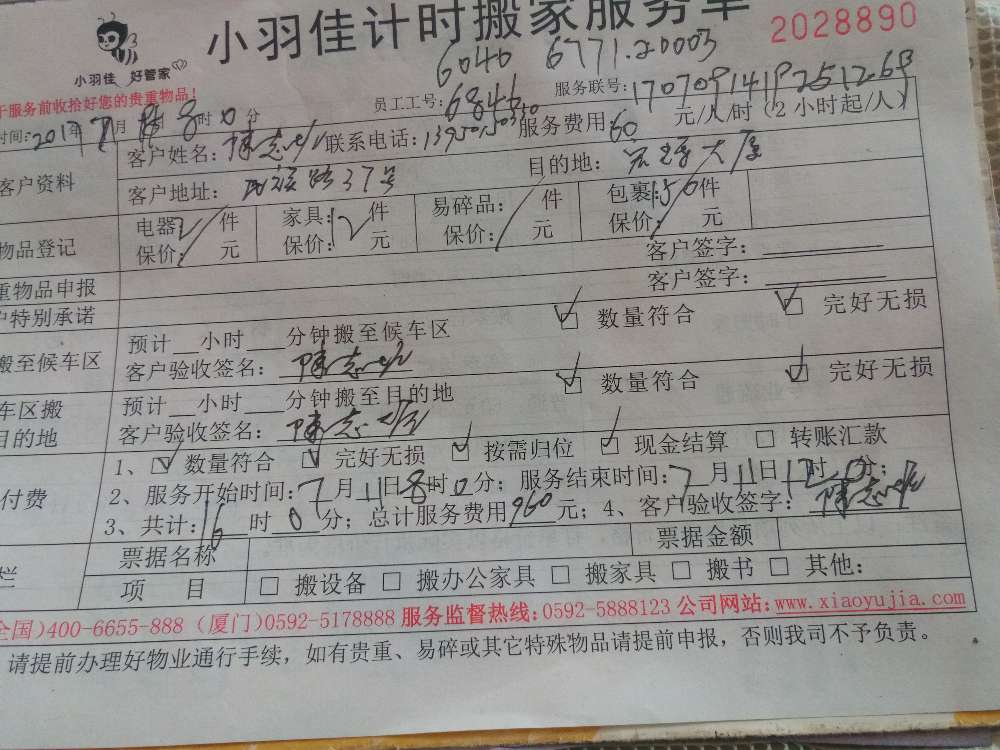 小羽佳计时搬家服务单
2028890
小羽佳 好管家
6046 6771.20003
服务前收拾好您的贵重物品!
员工工号: 6846
服务联号: 170709141925126B
时间: 2017年7月11日8时0分
服务费用: 60 元/人/时 (2小时起/人)
客户资料
客户姓名: 陈志
联系电话:
客户地址: 路37号
目的地: 大厦
物品登记
电器: 件
家具: 12 件
易碎品: / 件
包裹: 150件
保价: 元
保价: 元
保价: 元
保价: 元
重物品申报
客户签字:
户特别承诺
客户签字:
搬至候车区
预计__小时___分钟搬至候车区
数量符合 完好无损
客户验收签名: 陈志
车区搬
目的地
预计__小时___分钟搬至目的地
数量符合 完好无损
客户验收签名: 陈志
付费
1、数量符合 完好无损 按需归位 现金结算 转账汇款
2、服务开始时间: 7月11日8时0分; 服务结束时间: 7月11日12时0分;
3、共计: 16时0分; 总计服务费用960元; 4、客户验收签字: 陈志
栏
票据名称
票据金额
项 目
搬设备 搬办公家具 搬家具 搬书 其他:
全国)400-6655-888 (厦门)0592-5178888 服务监督热线:0592-5888123 公司网站:www.xiaoyujia.com
请提前办理好物业通行手续，如有贵重、易碎或其它特殊物品请提前申报，否则我司不予负责。